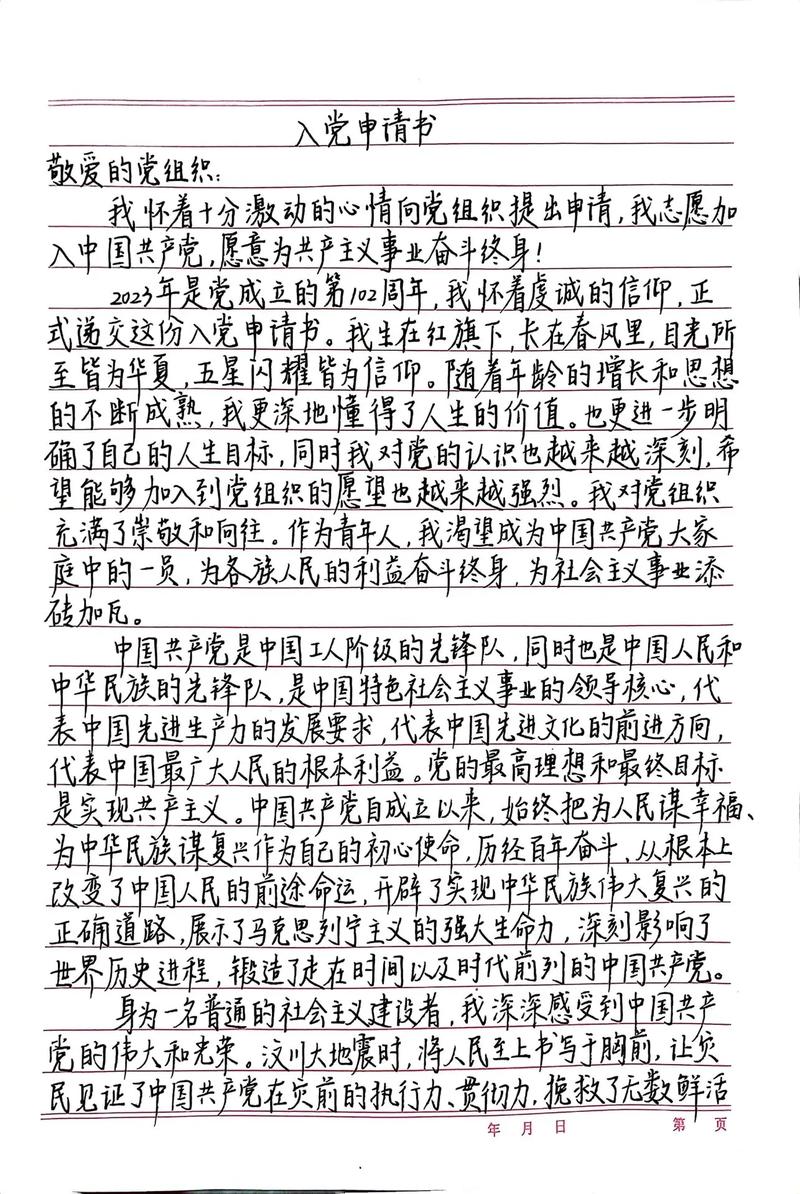 入党申请书
敬爱的党组织:
我怀着十分激动的心情向党组织提出申请,我志愿加
入中国共产党,愿意为共产主义事业奋斗终身!
2023年是党成立的第102周年,我怀着虔诚的信仰,正
式递交这份入党申请书。我生在红旗下,长在春风里,目光所
至皆为华夏,五星闪耀皆为信仰。随着年龄的增长和思想
的不断成熟,我更深地懂得了人生的价值。也更进一步明
确了自己的人生目标,同时我对党的认识也越来越深刻,希
望能够加入到党组织的愿望也越来越强烈。我对党组织
充满了崇敬和向往。作为青年人,我渴望成为中国共产党大家
庭中的一员,为各族人民的利益奋斗终身,为社会主义事业添
砖加瓦。
中国共产党是中国工人阶级的先锋队,同时也是中国人民和
中华民族的先锋队,是中国特色社会主义事业的领导核心,代
表中国先进生产力的发展要求,代表中国先进文化的前进方向,
代表中国最广大人民的根本利益。党的最高理想和最终目标
是实现共产主义。中国共产党自成立以来,始终把为人民谋幸福、
为中华民族谋复兴作为自己的初心使命,历经百年奋斗,从根本上
改变了中国人民的前途命运,开辟了实现中华民族伟大复兴的
正确道路,展示了马克思列宁主义的强大生命力,深刻影响了
世界历史进程,锻造了走在时间以及时代前列的中国共产党。
身为一名普通的社会主义建设者,我深深感受到中国共产
党的伟大和光荣。汶川大地震时,将人民至上书写于胸前,让灾
民见证了中国共产党在灾前的执行力、贯彻力,挽救了无数鲜活
年 月 日 第 页